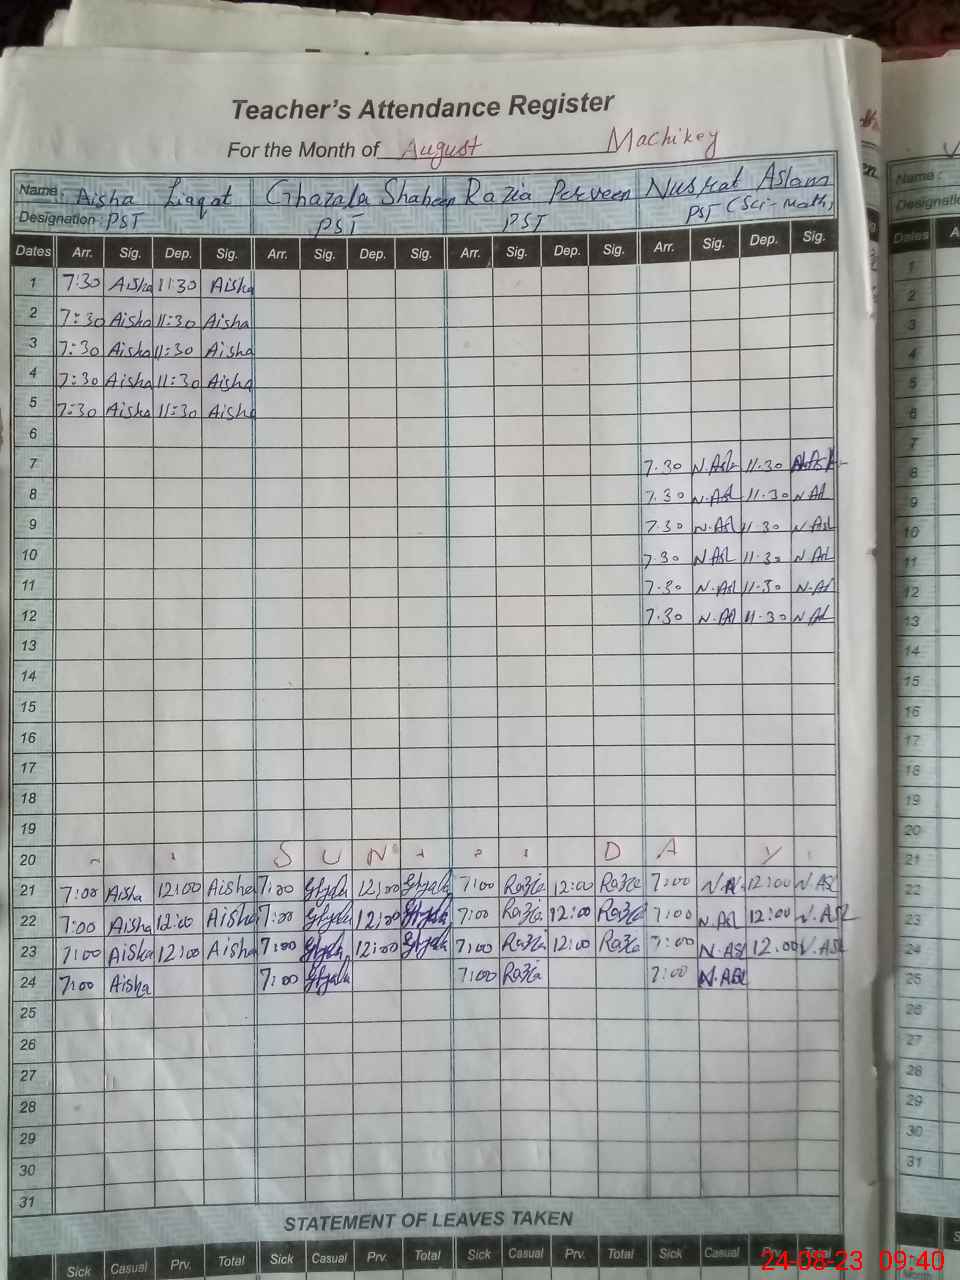 Teacher's Attendance Register
For the Month of August Machikey
Name: Aisha Liaqat Ghazala Shaheen Razia Perveen Nusrat Aslam
Designation: PST PST PST PST (Sci-Math)
Dates Arr. Sig. Dep. Sig. Arr. Sig. Dep. Sig. Arr. Sig. Dep. Sig. Arr. Sig. Dep. Sig.
1 7:30 Aisha 11:30 Aisha
2 7:30 Aisha 11:30 Aisha
3 7:30 Aisha 11:30 Aisha
4 7:30 Aisha 11:30 Aisha
5 7:30 Aisha 11:30 Aisha
6
7 7.30 N.Asl 11.30
8 7.30 N.Asl 11.30 N Al
9 7.30 N.Asl 11.30 N Asl
10 7.30 N Asl 11.30 N Asl
11 7.30 N.Asl 11.30 N.Al
12 7.30 N.Al 11.30 N Al
13
14
15
16
17
18
19
20 S U N D A Y
21 7:00 Aisha 12:00 Aisha 7:00 Ghzala 12:00 Ghzala 7:00 Razia 12:00 Razia 7:00 N.A. 12:00 N.ASL
22 7:00 Aisha 12:00 Aisha 7:00 Ghzala 12:00 Ghzala 7:00 Razia 12:00 Razia 7:00 N.ASL 12:00 N.ASL
23 7:00 Aisha 12:00 Aisha 7:00 Ghzala 12:00 Ghzala 7:00 Razia 12:00 Razia 7:00 N.ASL 12.00 N.ASL
24 7:00 Aisha 7:00 Ghzala 7:00 Razia 7:00 N.ASL
25
26
27
28
29
30
31
STATEMENT OF LEAVES TAKEN
Sick Casual Prv. Total Sick Casual Prv. Total Sick Casual Prv. Total Sick Casual Prv. Total
24-08-23 09:40
Name:
Designatio
Dates A
1
2
3
4
5
6
7
8
9
10
11
12
13
14
15
16
17
18
19
20
21
22
23
24
25
26
27
28
29
30
31